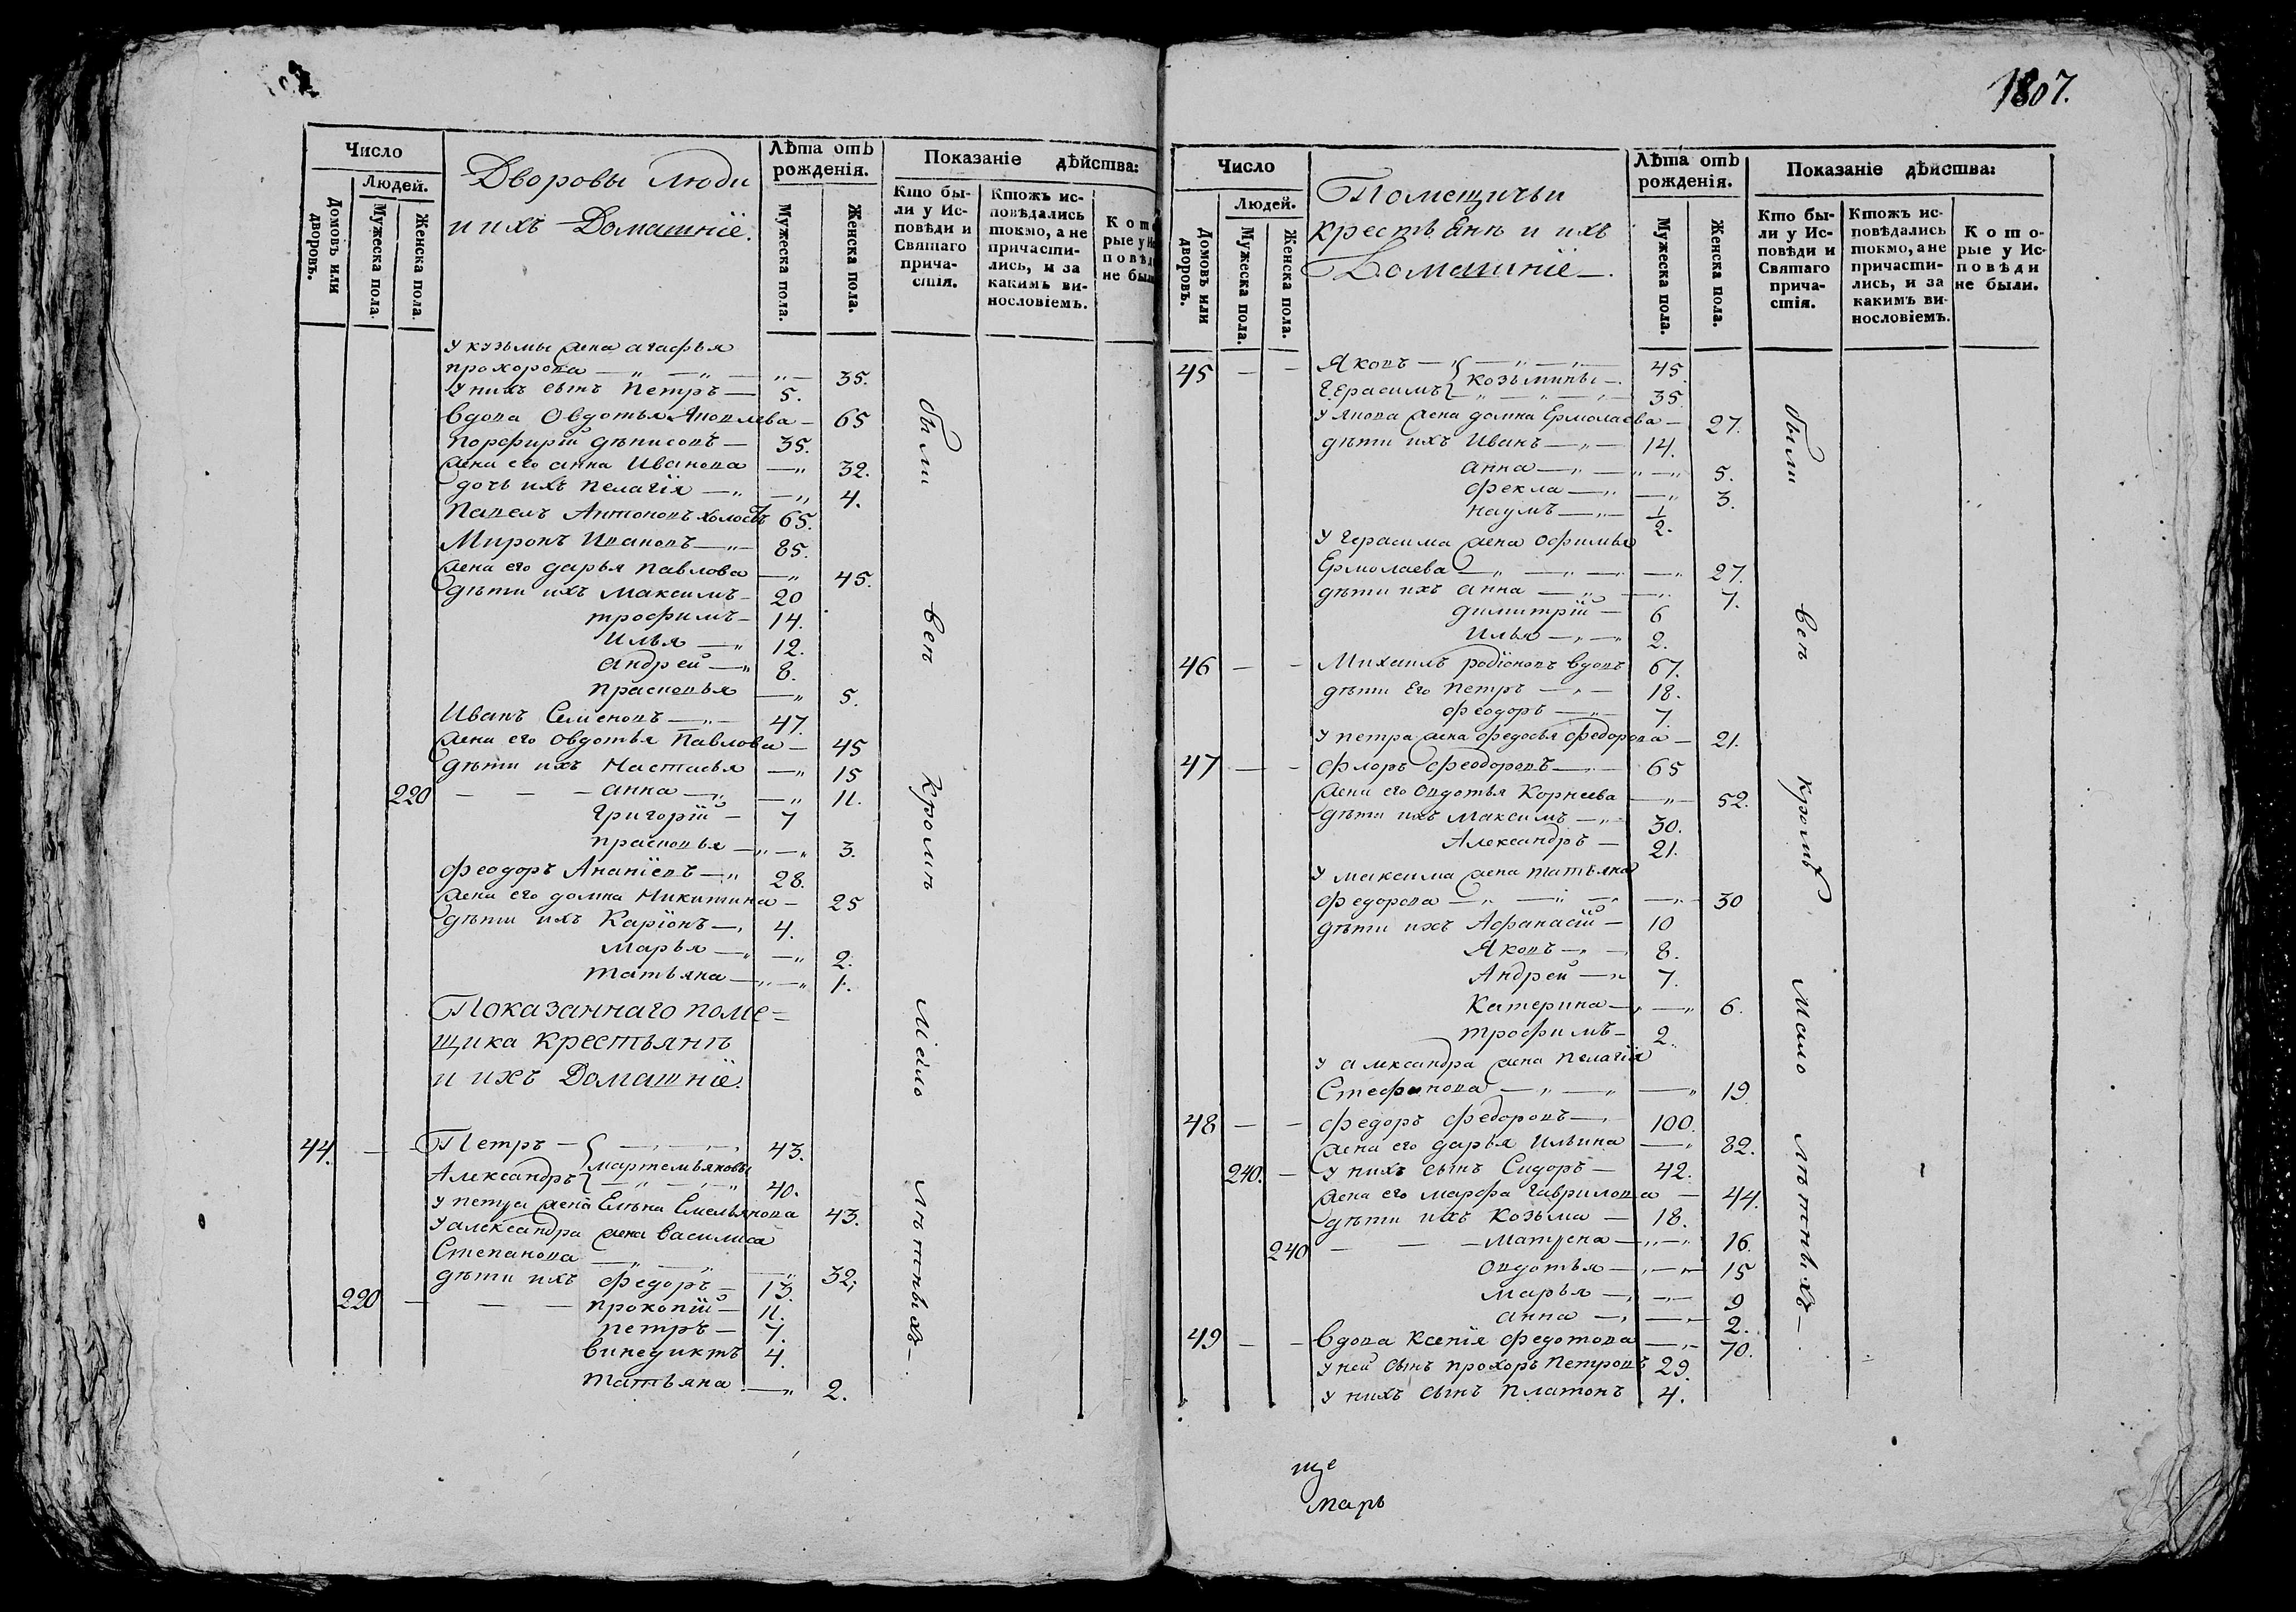 1807.
Число
Людей.
Домовъ или дворовъ.
Мужеска пола.
Женска пола.
Дворовы люди
и ихъ Домашніе.
Лѣта отъ рожденія.
Мужеска пола.
Женска пола.
Показаніе дѣйства:
Кто бы-
ли у Ис-
повѣди и
Святаго
прича-
стія.
Ктожъ ис-
повѣдались
токмо, а не
причасти-
лись, и за
какимъ ви-
нословіемъ.
рые у Ис
повѣд
не были
У кузьмы жена агафья
прохорова — „ — „ — „ — 35.
У нихъ сынъ Петръ — 5.
вдова Овдотья Яковлева — 65
Порфирій денисовъ — 35.
жена его анна Иванова — „ 32.
дочь ихъ пелагія — „ — „ 4.
Павелъ Антоновъ холостъ 65.
Миронъ Ивановъ — „ — 85.
жена его дарья павлова — „ 45.
дѣти ихъ максимъ — 20
трофимъ — 14.
Илья — „ 12.
андрей — „ 8.
прасковья — „ 5.
Иванъ Семеновъ — „ — 47.
жена его овдотья павлова — 45
дѣти ихъ Настасья — „ 15
220 — — — анна — „ — „ 11.
григорій — 7
прасковья — „ — „ 3.
феодоръ Ананіевъ — „ 28.
жена его домна Никитина — 25
дѣти ихъ Каріонъ — „ 4.
марья — „ — „ 2.
татьяна — „ — „ 1.
Показаннаго поме=
щика крестьянѣ
и ихъ Домашніе.
44. — — Петръ — { — „ — „ 43.
Александръ } мартемьяновы — „ — „ 40.
У петра жена Елѣна Емельянова 43.
У александра жена василиса
Степанова — „ — „ — „ 32.
дѣти ихъ федоръ — 13.
220 — — — прокопій — 11.
петръ — 7.
винедиктъ 4.
татьяна — „ 2.
были всѣ кромѣ мало лѣтныхъ —
Число
Людей.
Домовъ или дворовъ.
Мужеска пола.
Женска пола.
Помещичьи
крестьянѣ и ихъ
Домашніе —
Лѣта отъ рожденія.
Мужеска пола.
Женска пола.
Показаніе дѣйства:
Кто бы-
ли у Ис-
повѣди и
Святаго
прича-
стія.
Ктожъ ис-
повѣдались
токмо, а не
причасти-
лись, и за
какимъ ви-
нословіемъ.
Кото-
рые у Ис-
повѣди
не были.
45 — — Яковъ — „ { — „ — „ 45.
Герасимъ } козьмины — 35.
У якова жена домна Ермолаева — 27.
дѣти ихъ Иванъ — „ — 14.
анна — „ — „ — „ 5.
фекла — „ — „ 3.
наумъ — „ — 1/2.
У герасима жена Офимья
Ермолаева — „ — „ — „ — „ 27.
дѣти ихъ анна — „ — „ 7.
димитрій — 6
илья — „ — „ 2.
46 — — Михаилъ родіоновъ вдовъ 67.
дѣти Его петръ — „ — 18.
феодоръ — „ — 7.
У петра жена федосья федорова — 21.
47 — — Флоръ феодоровъ — „ — 65
жена его овдотья Корнеева — „ — 52.
дѣти ихъ максимъ — „ 30.
Александръ — 21.
У максима жена татьяна
федорова — „ — „ — „ — „ 30
дѣти ихъ Афанасій — 10
Яковъ — „ — 8.
Андрей — „ 7.
Катерина — „ — „ 6.
трофимъ — 2.
У александра жена пелагія
Стефанова — „ — „ — „ 19
48 — — федоръ федоровъ — „ 100.
жена его дарья ильина — „ 82.
240. — У нихъ сынъ Сидоръ — 42.
жена его марфа гаврилова — 44.
дѣти ихъ козьма — 18.
240 — — — матрена — „ — „ 16.
овдотья — „ — „ 15
марья — „ — „ 9
анна — „ — „ 2.
49 — — вдова ксенія федотова — „ — 70.
У ней сынъ прохоръ Петровъ 29.
У нихъ сынъ платонъ 4.
были всѣ кромѣ мало лѣтныхъ —
ще
марь